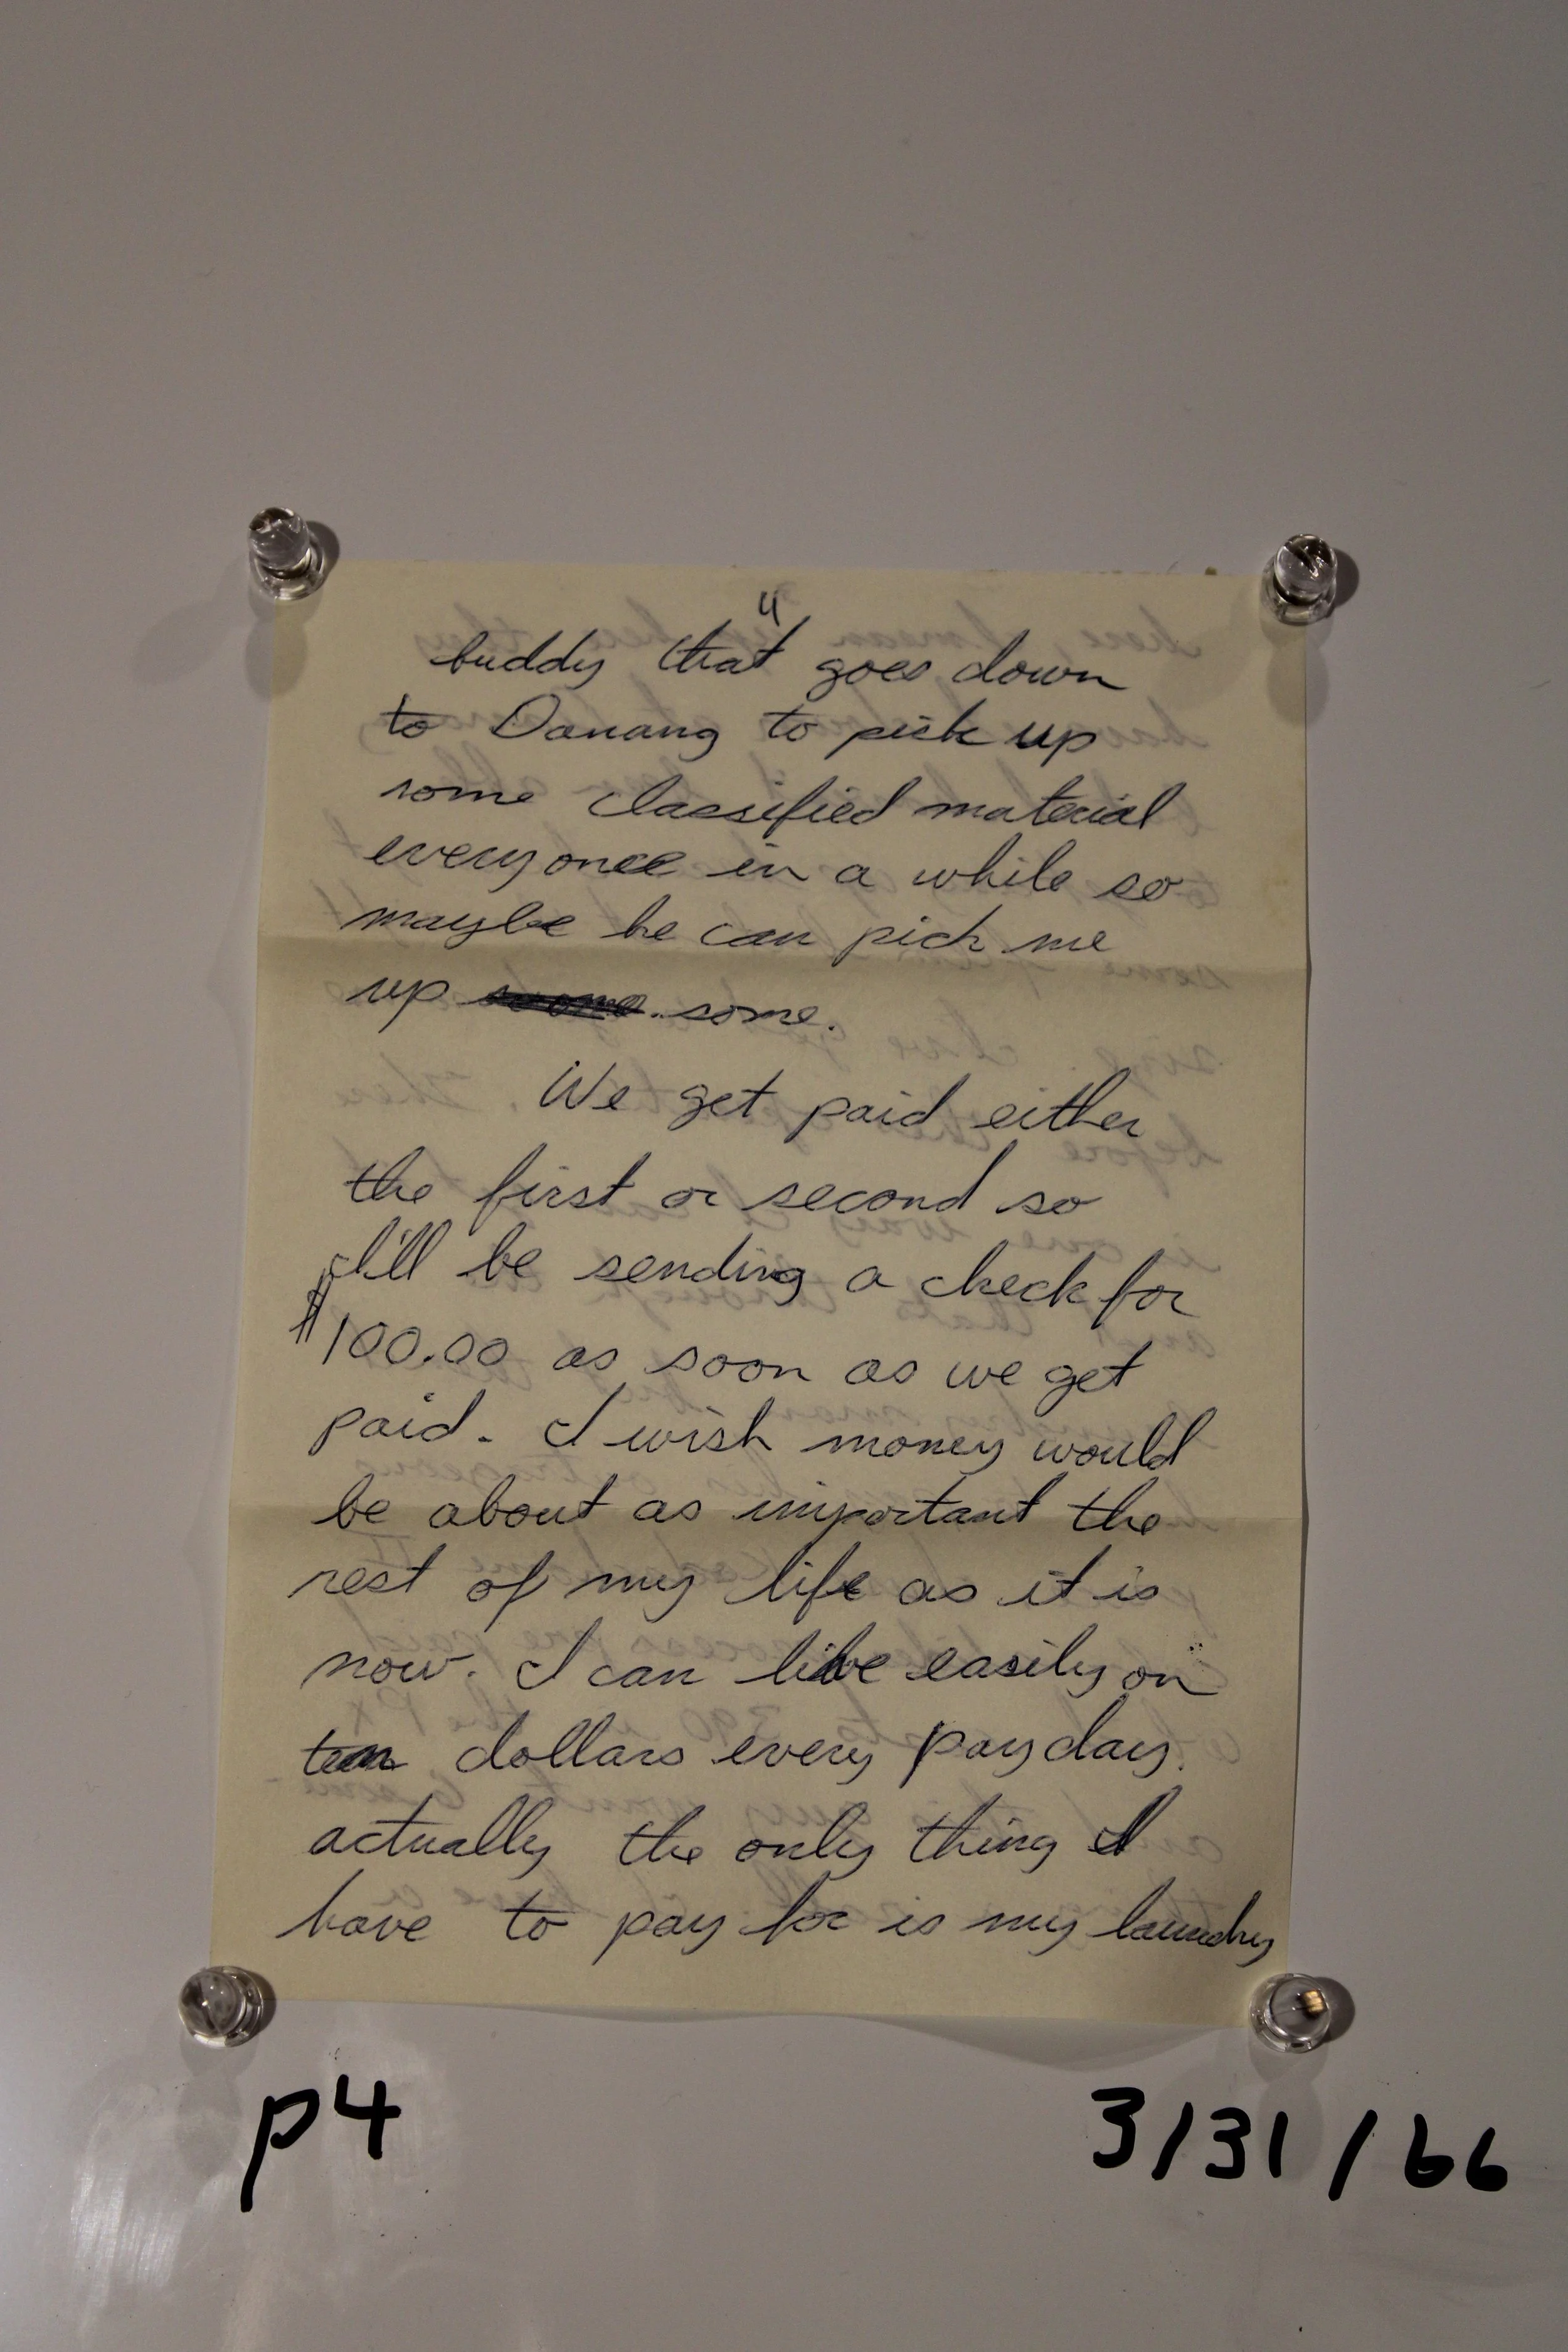 4
buddy that goes down
to Danang to pick up
some classified material
everyonce in a while so
maybe he can pick me
up some.
We get paid either
the first or second so
I'll be sending a check for
$100.00 as soon as we get
paid. I wish money would
be about as important the
rest of my life as it is
now. I can live easily on
ten dollars every payday.
actually the only thing I
have to pay for is my laundry
p4
3/31/66